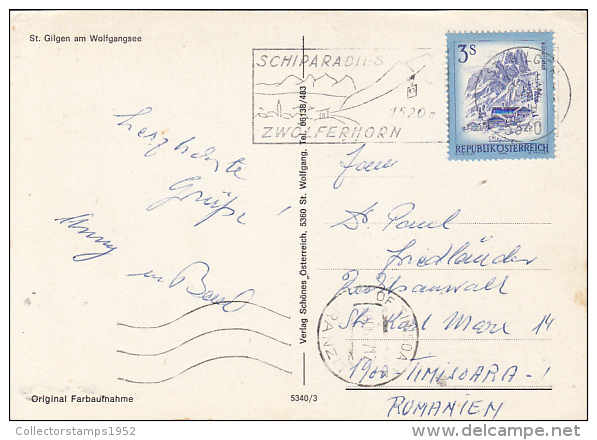 St. Gilgen am Wolfgangsee
SCHIPARADIES
1520m
ZWÖLFERHORN
3S
REPUBLIK ÖSTERREICH
5340
herzlichste
Grüße!
Verlag Schönes Österreich, 5360 St. Wolfgang, Tel. 06138/483
Dr. Paul
Friedländer
Rechtsanwalt
Str. Karl Marx 14
1900 TIMISOARA - !
ROMANIEN
Original Farbaufnahme
5340/3
Collectorstamps1952
delcampe.net